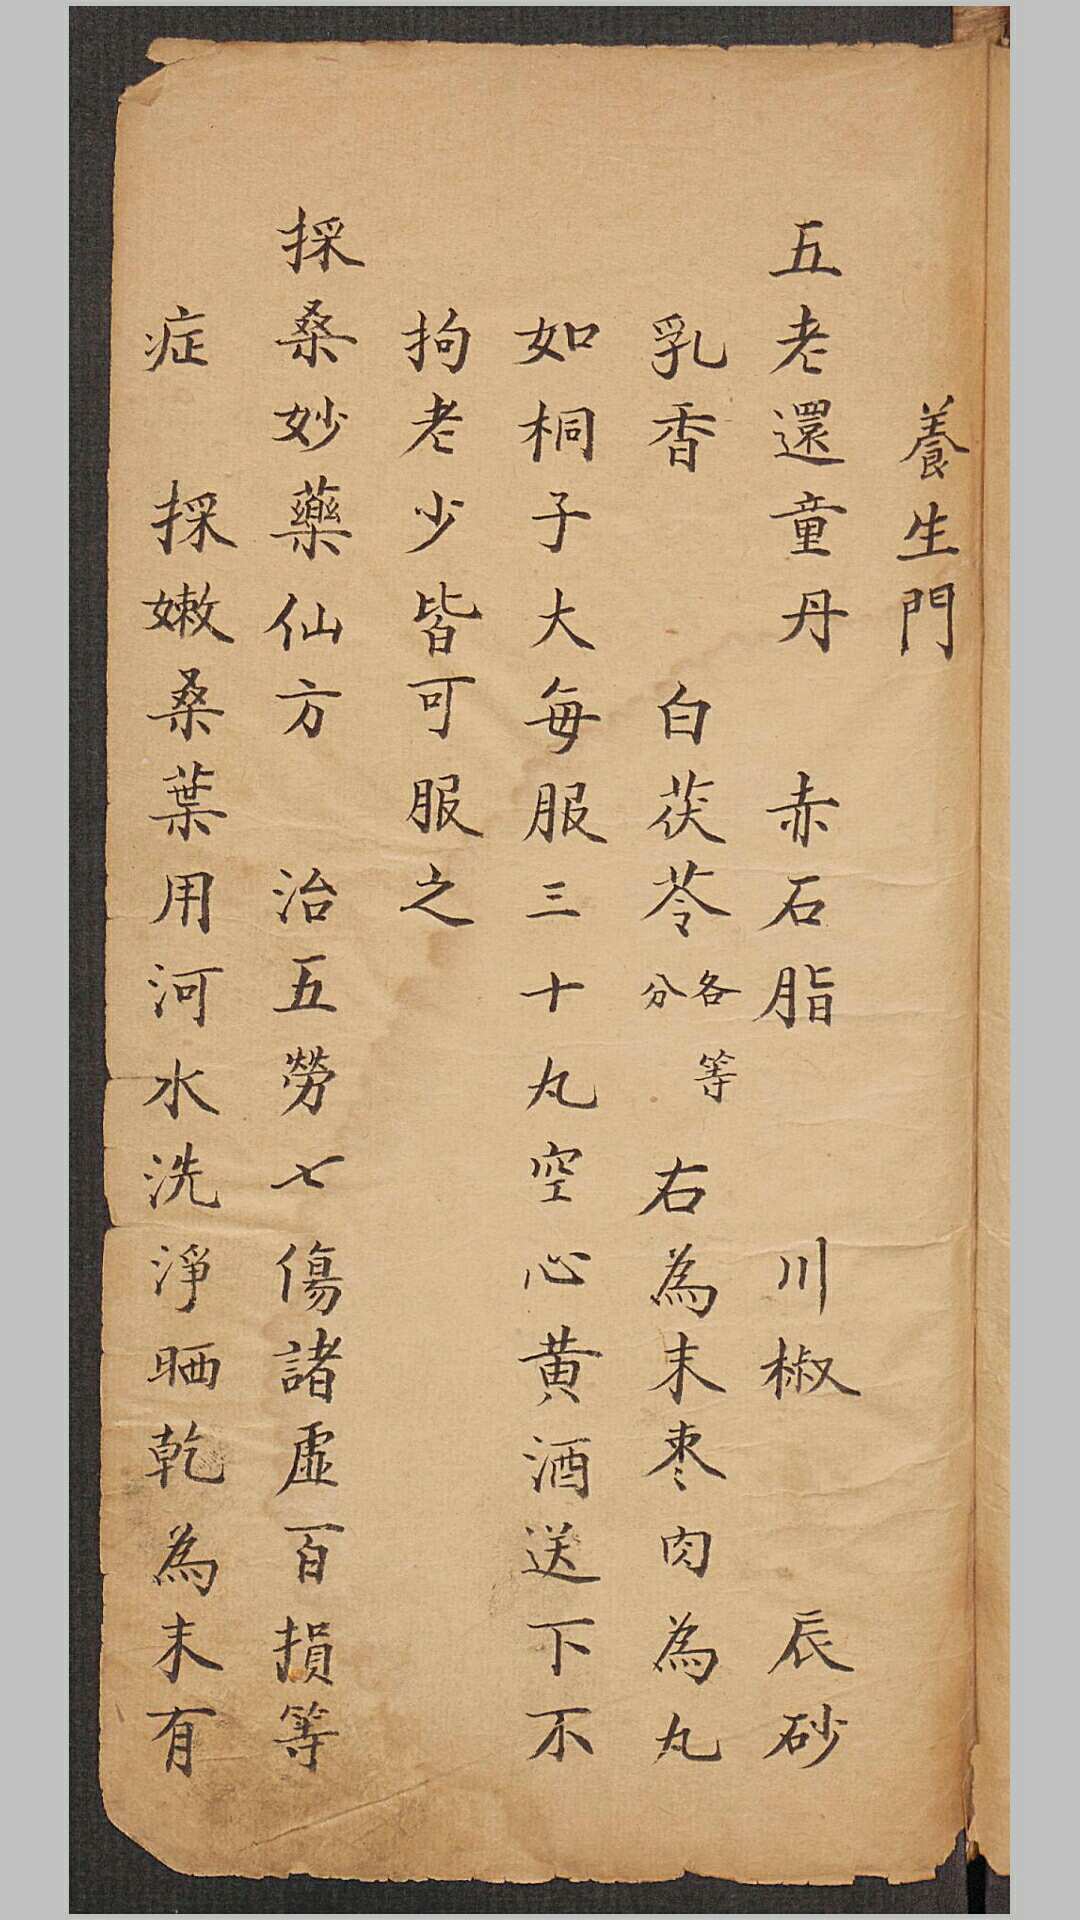 養生門
五老還童丹 赤石脂 川椒 辰砂
乳香 白茯苓各等分 右為末棗肉為丸
如桐子大每服三十丸空心黃酒送下不
拘老少皆可服之
採桑妙藥仙方 治五勞七傷諸虛百損等
症 採嫩桑葉用河水洗淨晒乾為末有